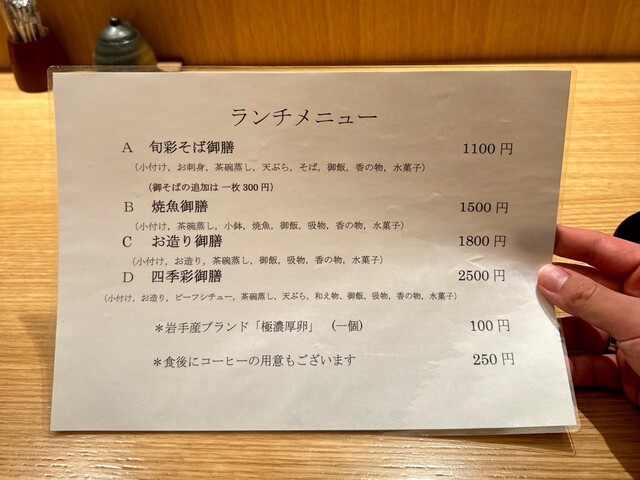 ランチメニュー
A 旬彩そば御膳 1100円
（小付け，お刺身，茶碗蒸し，天ぷら，そば，御飯，香の物，水菓子）
（御そばの追加は 一枚 300円）
B 焼魚御膳 1500円
（小付け，茶碗蒸し，小鉢，焼魚，御飯，吸物，香の物，水菓子）
C お造り御膳 1800円
（小付け，お造り，茶碗蒸し，御飯，吸物，香の物，水菓子）
D 四季彩御膳 2500円
（小付け，お造り，ビーフシチュー，茶碗蒸し，天ぷら，和え物，御飯，吸物，香の物，水菓子）
＊岩手産ブランド「極濃厚卵」（一個） 100円
＊食後にコーヒーの用意もございます 250円